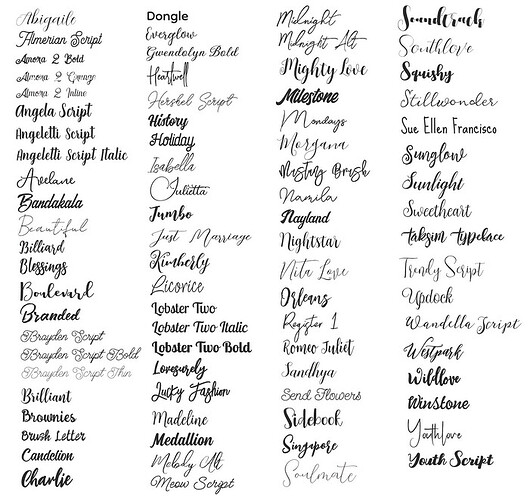 Abigaile
Almerian Script
Amora 2 Bold
Amora 2 Grunge
Amora 2 Inline
Angela Script
Angeletti Script
Angeletti Script Italic
Avelane
Bandakala
Beautiful
Billiard
Blessings
Boulevard
Branded
Brayden Script
Brayden Script Bold
Brayden Script Thin
Brilliant
Brownies
Brush Letter
Camdelion
Charlie
Dongle
Everglow
Gwendolyn Bold
Heartwell
Hershel Script
History
Holiday
Isabella
Julietta
Jumbo
Just Marriage
Kimberly
Licorice
Lobster Two
Lobster Two Italic
Lobster Two Bold
Lovesurely
Lucky Fashion
Madeline
Medallion
Melody Alt
Meow Script
Midnight
Midnight Alt
Mighty Love
Milestone
Mondays
Morgana
Mustang Brush
Namila
Nayland
Nightstar
Nita Love
Orleans
Register 1
Romeo Juliet
Sandhya
Send Flowers
Sidebook
Singapore
Soulmate
Soundtrack
Southlove
Squishy
Stillwonder
Sue Ellen Francisco
Sunglow
Sunlight
Sweetheart
Taksim Typeface
Trendy Script
Updock
Wandella Script
Westpark
Wildlove
Winstone
Youthlove
Youth Script